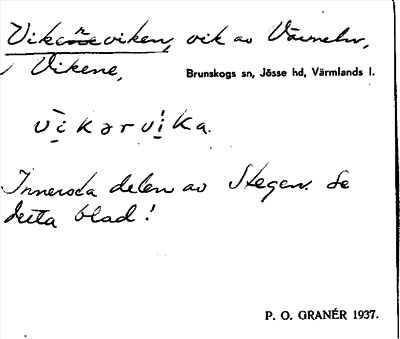 Vikerviken, vik av Värmeln,
i Vikene,
Brunskogs sn, Jösse hd, Värmlands l.
vìkərvi̍ka.
Innersta delen av Stegen. Se
detta blad!
P. O. GRANÉR 1937.